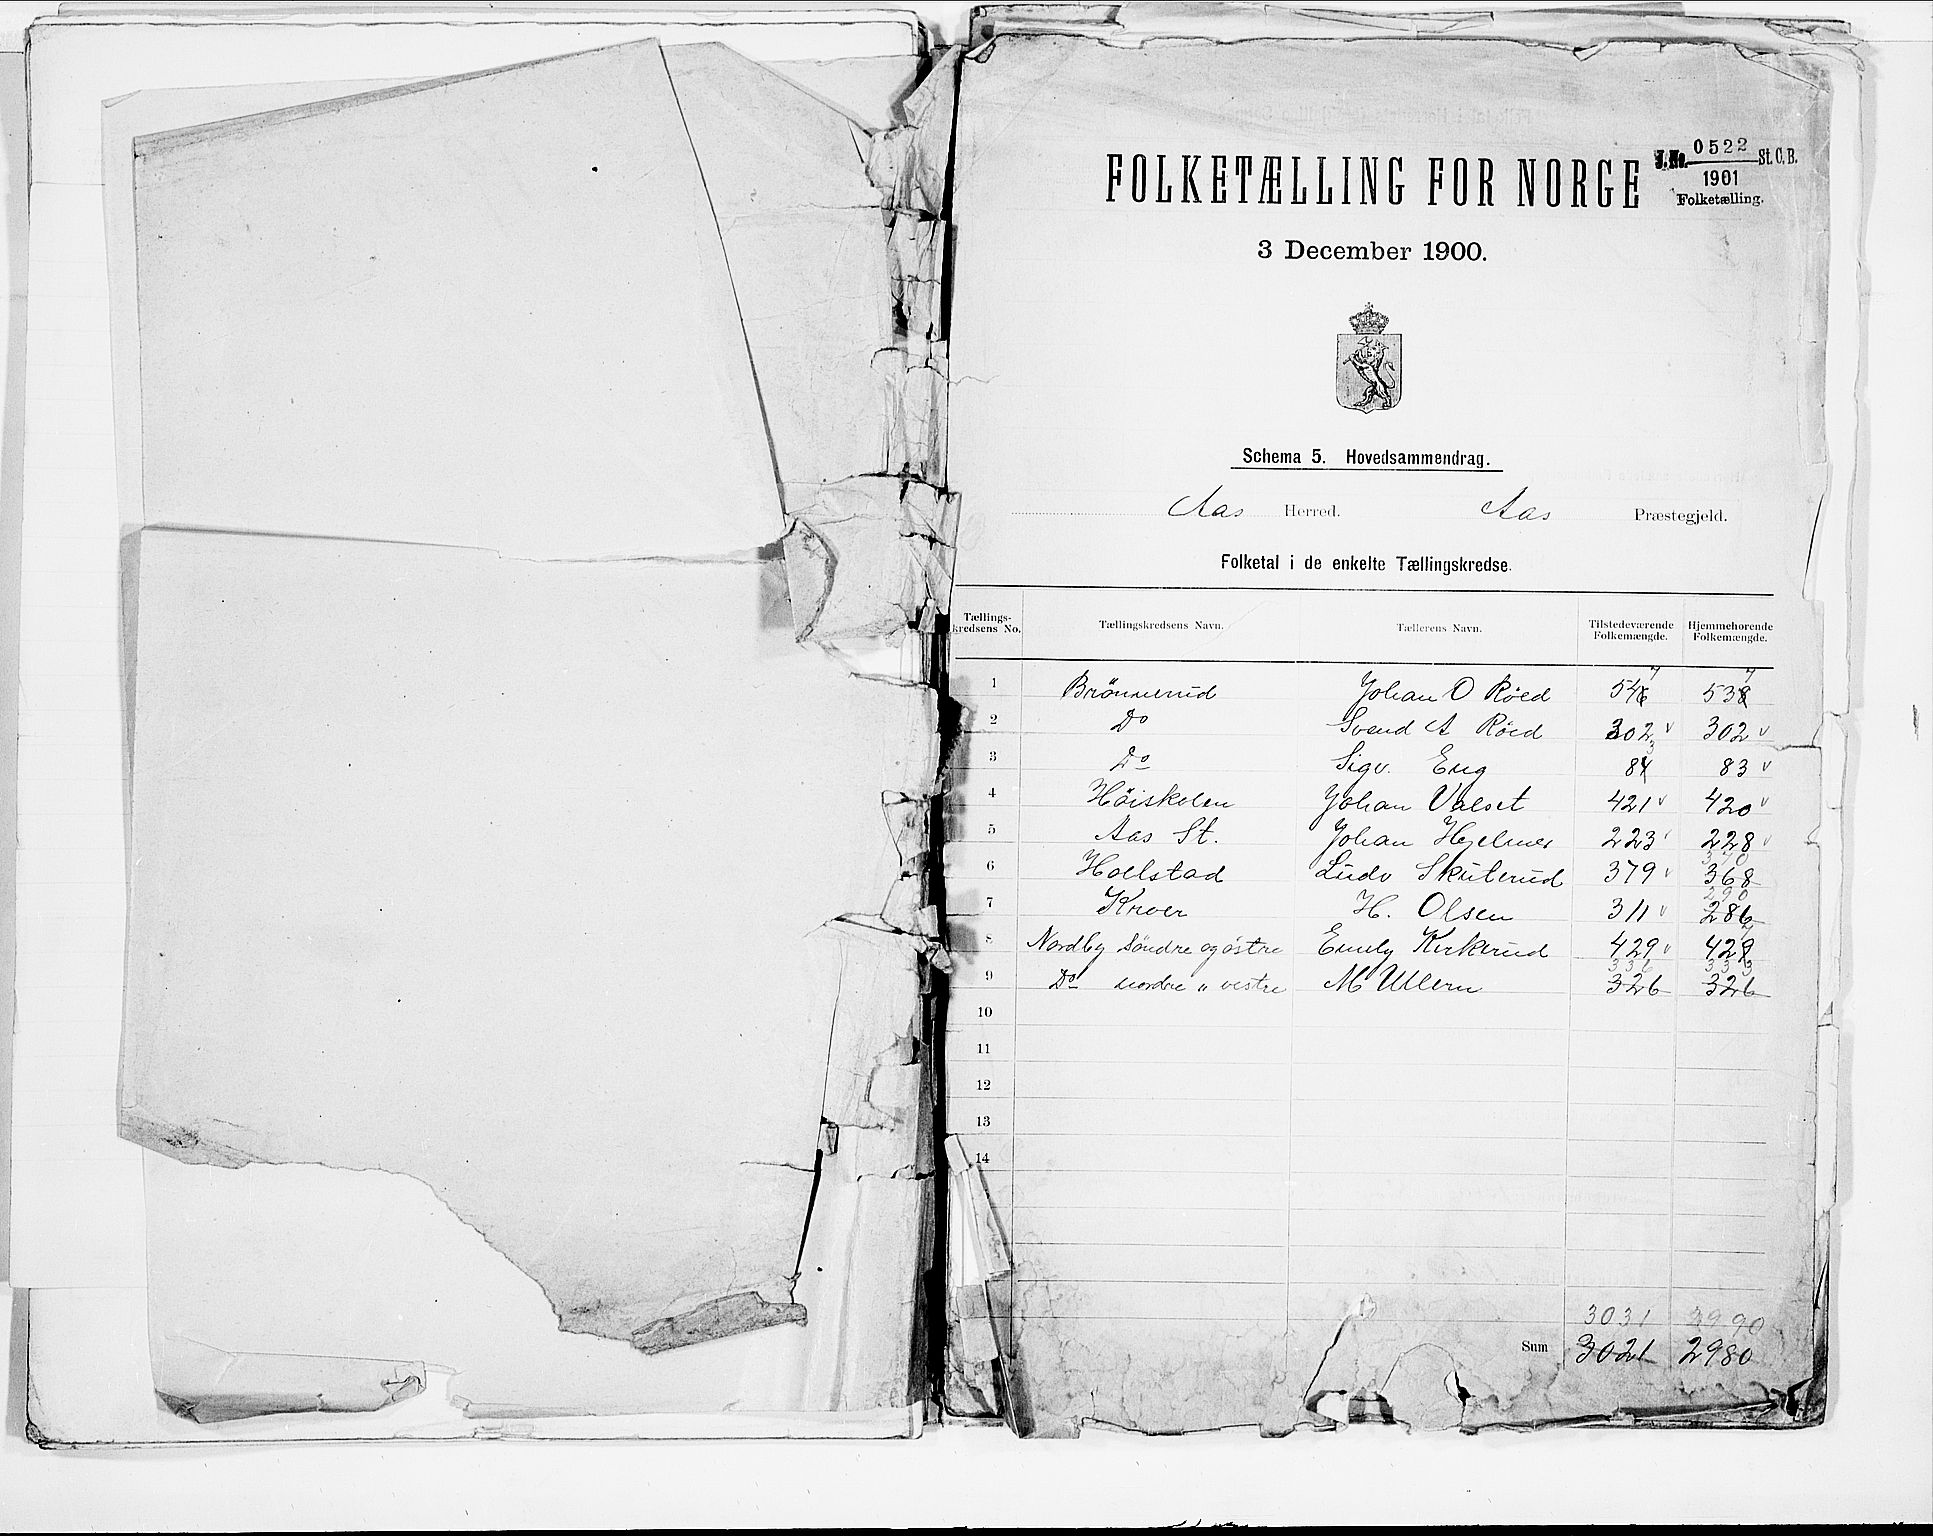 FOLKETÆLLING FOR NORGE
J. No. 0522 St. C. B.
1901
Folketælling.
3 December 1900.
Schema 5. Hovedsammendrag.
Aas Herred. Aas Præstegjeld.
Folketal i de enkelte Tællingskredse.
Tællings-kredsens No. Tællingskredsens Navn. Tællerens Navn. Tilstedeværende Folkemængde. Hjemmehørende Folkemængde.
7 7
1 Brönnerud Johan O Röed 546 538
2 Do Svend A Röed 302 v 302 v
3
3 Do Sigv. Eng 84 83 v
4 Höiskolen Johan Valset 421 v 420 v
5 Aas St. Johan Hjelmer 223 228 v
370
6 Holstad Ludv Skuterud 379 v 368
290
7 Kroer H. Olsen 311 v 286
8 Nordby söndre og östre Emely Kirkerud 429 v 428
336 333
9 Do nordre " vestre M Ullern 326 326
10
11
12
13
14
3031 2990
Sum 3021 2980